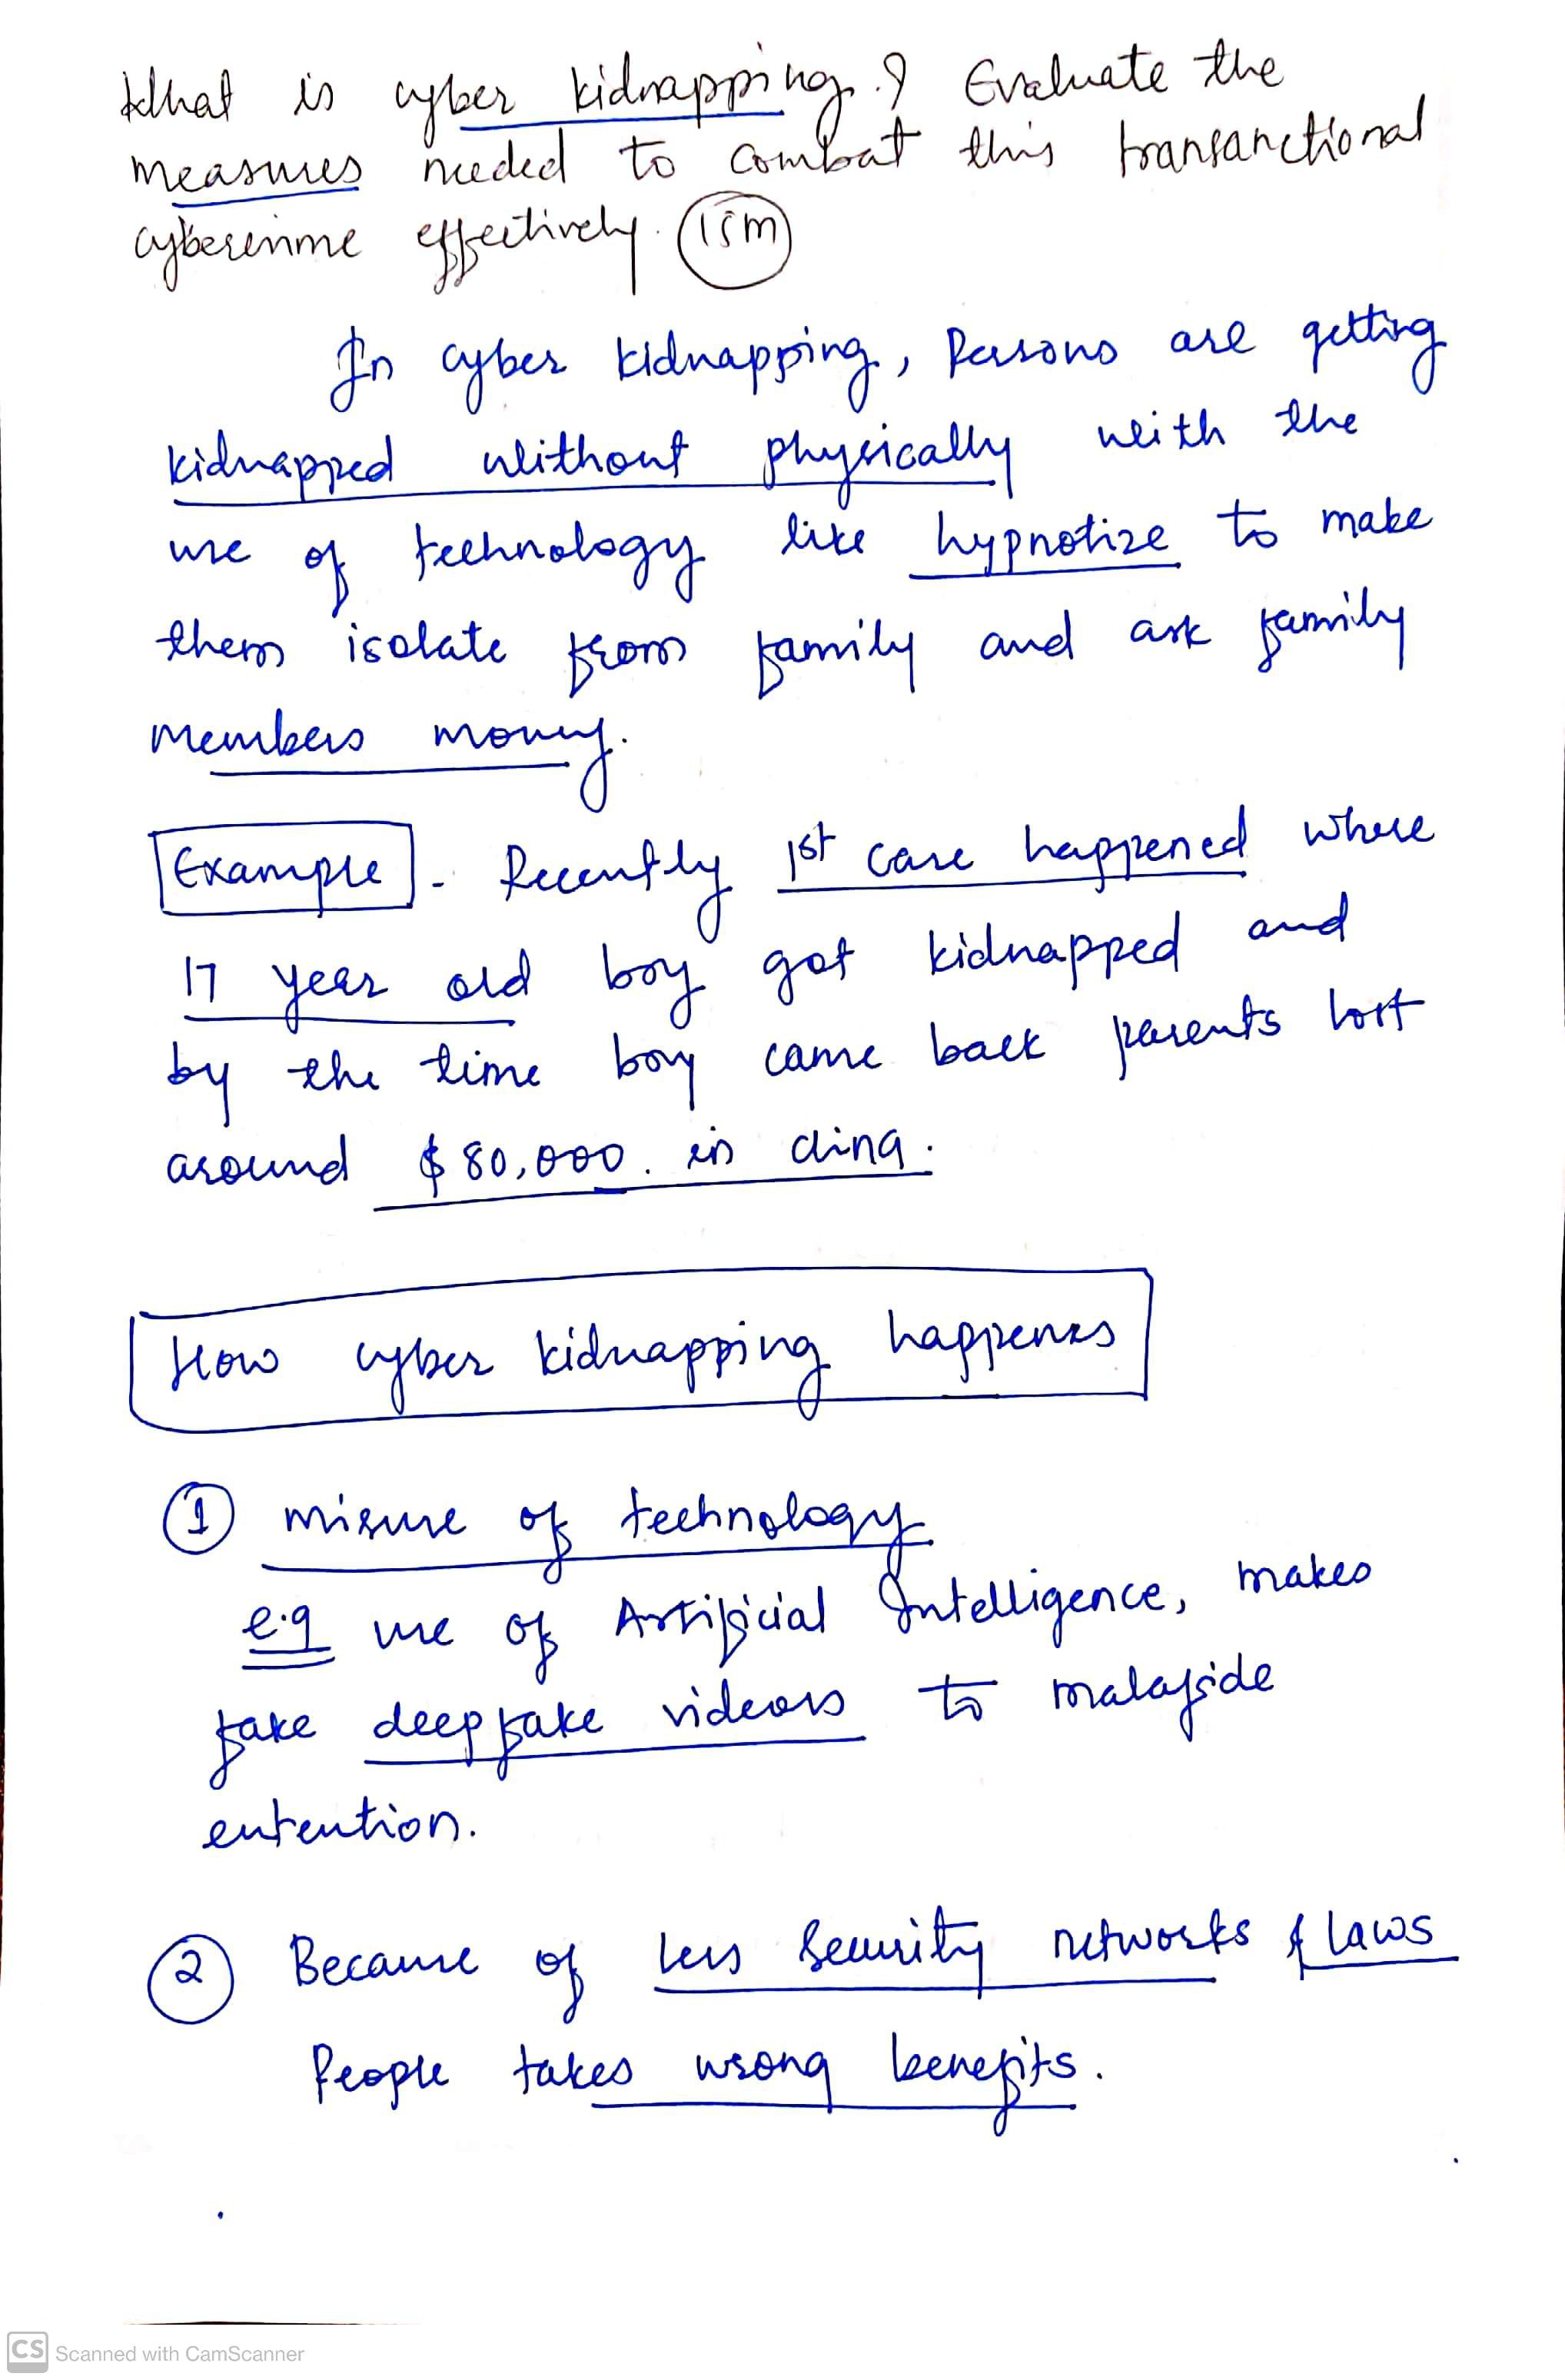 What is cyber kidnapping? Evaluate the
measures needed to combat this transanctional
cybercrime effectively. (15m)
In cyber kidnapping, Persons are getting
kidnapped without physically with the
use of technology like hypnotize to make
them isolate from family and ask family
members money.
Example - Recently 1st case happened where
17 year old boy got kidnapped and
by the time boy came back parents lost
around $80,000. in china.
How cyber kidnapping happenes
① misuse of technology
e.g use of Artificial Intelligence, makes
fake deepfake videos to malafide
entention.
② Because of less security networks & laws
People takes wrong benefits.
CS Scanned with CamScanner